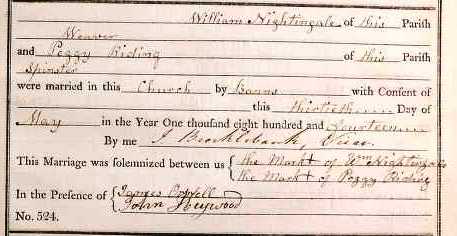 William Nightingale of this Parish
Weaver
and Peggy Riding of this Parish
Spinster
were married in this Church by Banns with Consent of
this thirtieth Day of
May in the Year One thousand eight hundred and fourteen
By me J. Brocklebank,
This Marriage was solemnized between us { the Mark + of Wm Nightingale
the Mark + of Peggy Riding
In the Presence of { James
John Heywood
No. 524.